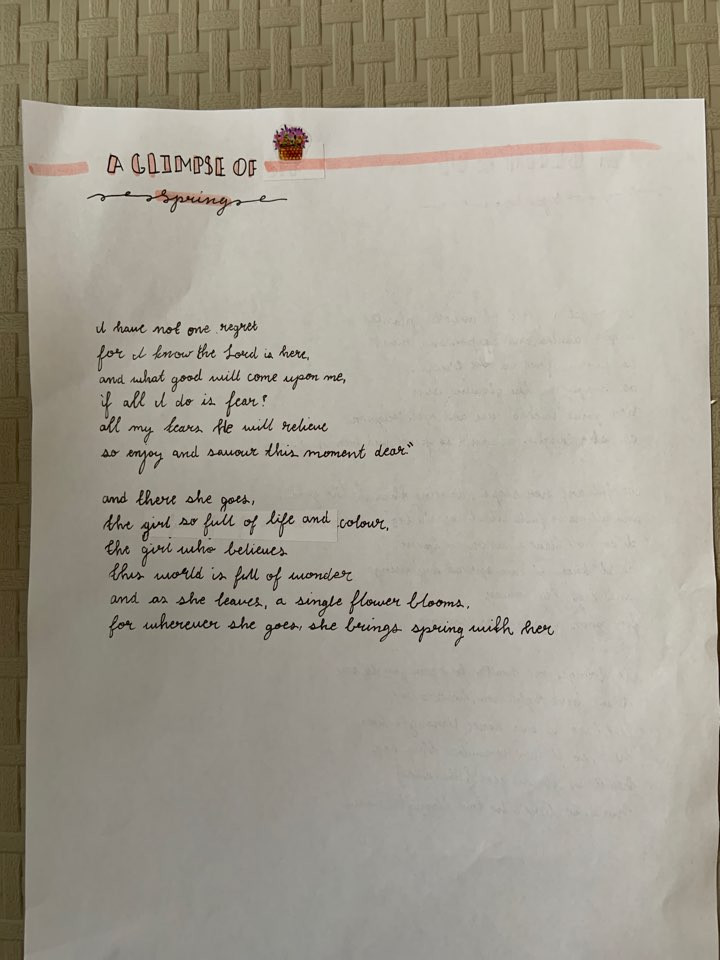 A GLIMPSE OF
Spring
I have not one regret
for I know the Lord is here,
and what good will come upon me,
if all I do is fear?
all my fears He will relieve
so enjoy and savour this moment dear"
and there she goes,
the girl so full of life and colour,
the girl who believes
this world is full of wonder
and as she leaves, a single flower blooms,
for wherever she goes, she brings spring with her